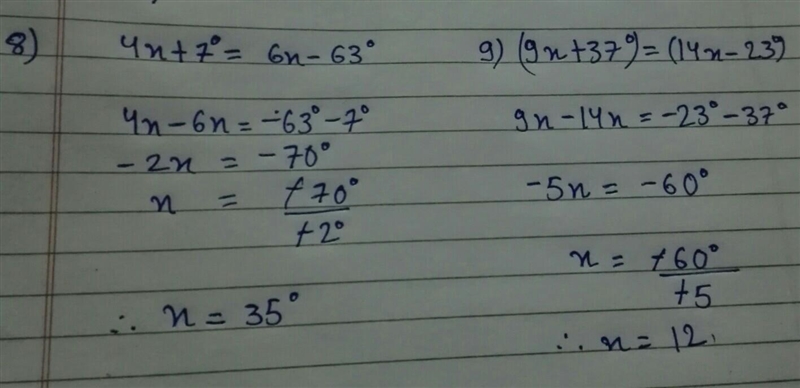 8) 4x+7° = 6x-63°
4x-6x = -63°-7°
-2x = -70°
x = +70°/+2°
∴ x = 35°
9) (9x+37°) = (14x-23°)
9x-14x = -23°-37°
-5x = -60°
x = +60°/+5
∴ x = 12.